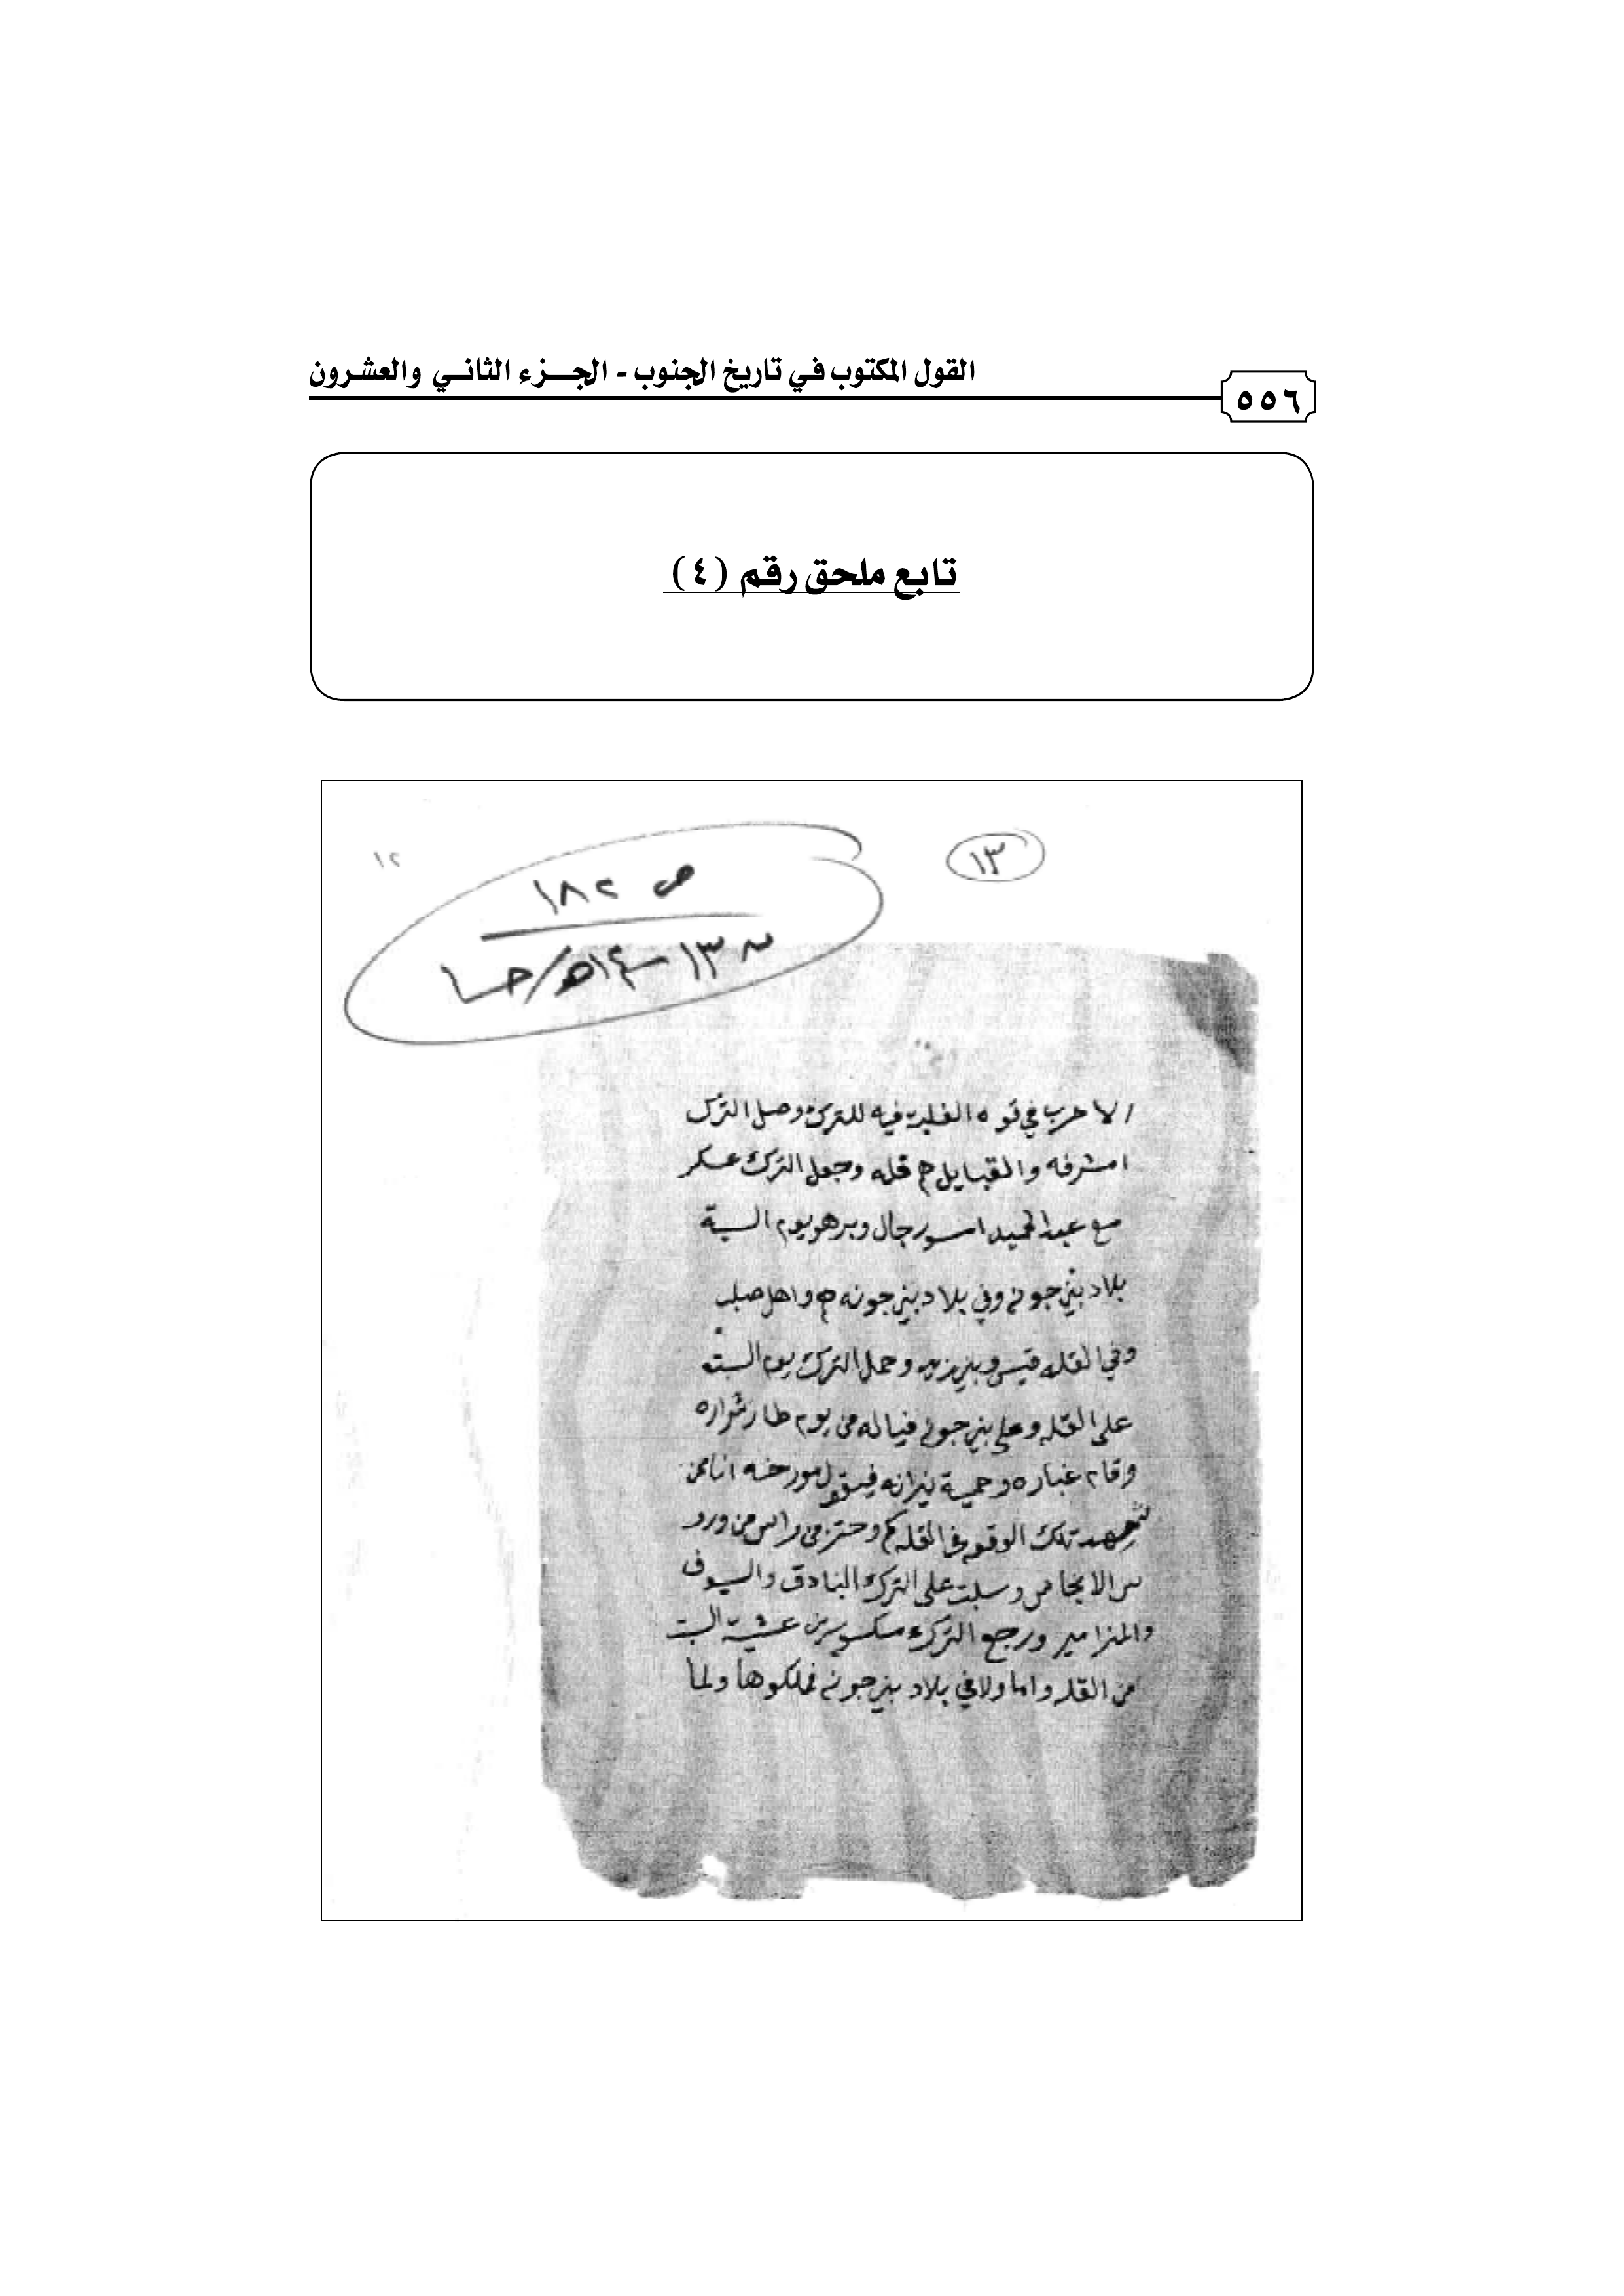 القول المكتوب في تاريخ الجنوب - الجزء الثاني والعشرون
٥٥٦
تابع ملحق رقم (٤)
١٣
١٢
ص ١٨٢
١٣-١٤هـ/
الا حرب في الغلبت فيه للترك وصل الترك
امشرفه والقبايل قله وجعل الترك عسكر
مع عبدالحميد رجال يوم السبة
بلاد بني جونه وفي بلاد بني جونه واهل صلب
وفي القله قيس وبني وحمل الترك يوم السبت
على القله وعلى بني جونه فياله من يوم طار شراره
وقام غباره وحمية نيرانه فيقول مورخه انا من
شهد تلك الوقعه في القله وحتز من راس من
الانجاس وسلبت على الترك البنادق والسيوف
والمزامير ورجع الترك مكسورين عشية السبت
من القله واما ولا في بلاد بني جونه فملكوها ولما